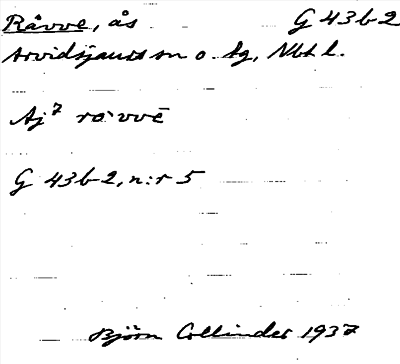 Råvve, ås G 43 b 2
Arvidsjaurs sn o. tg, Nbt l.
Aj⁷ rå`vvē
G 43 b 2, n:r 5
Björn Collinder 1937